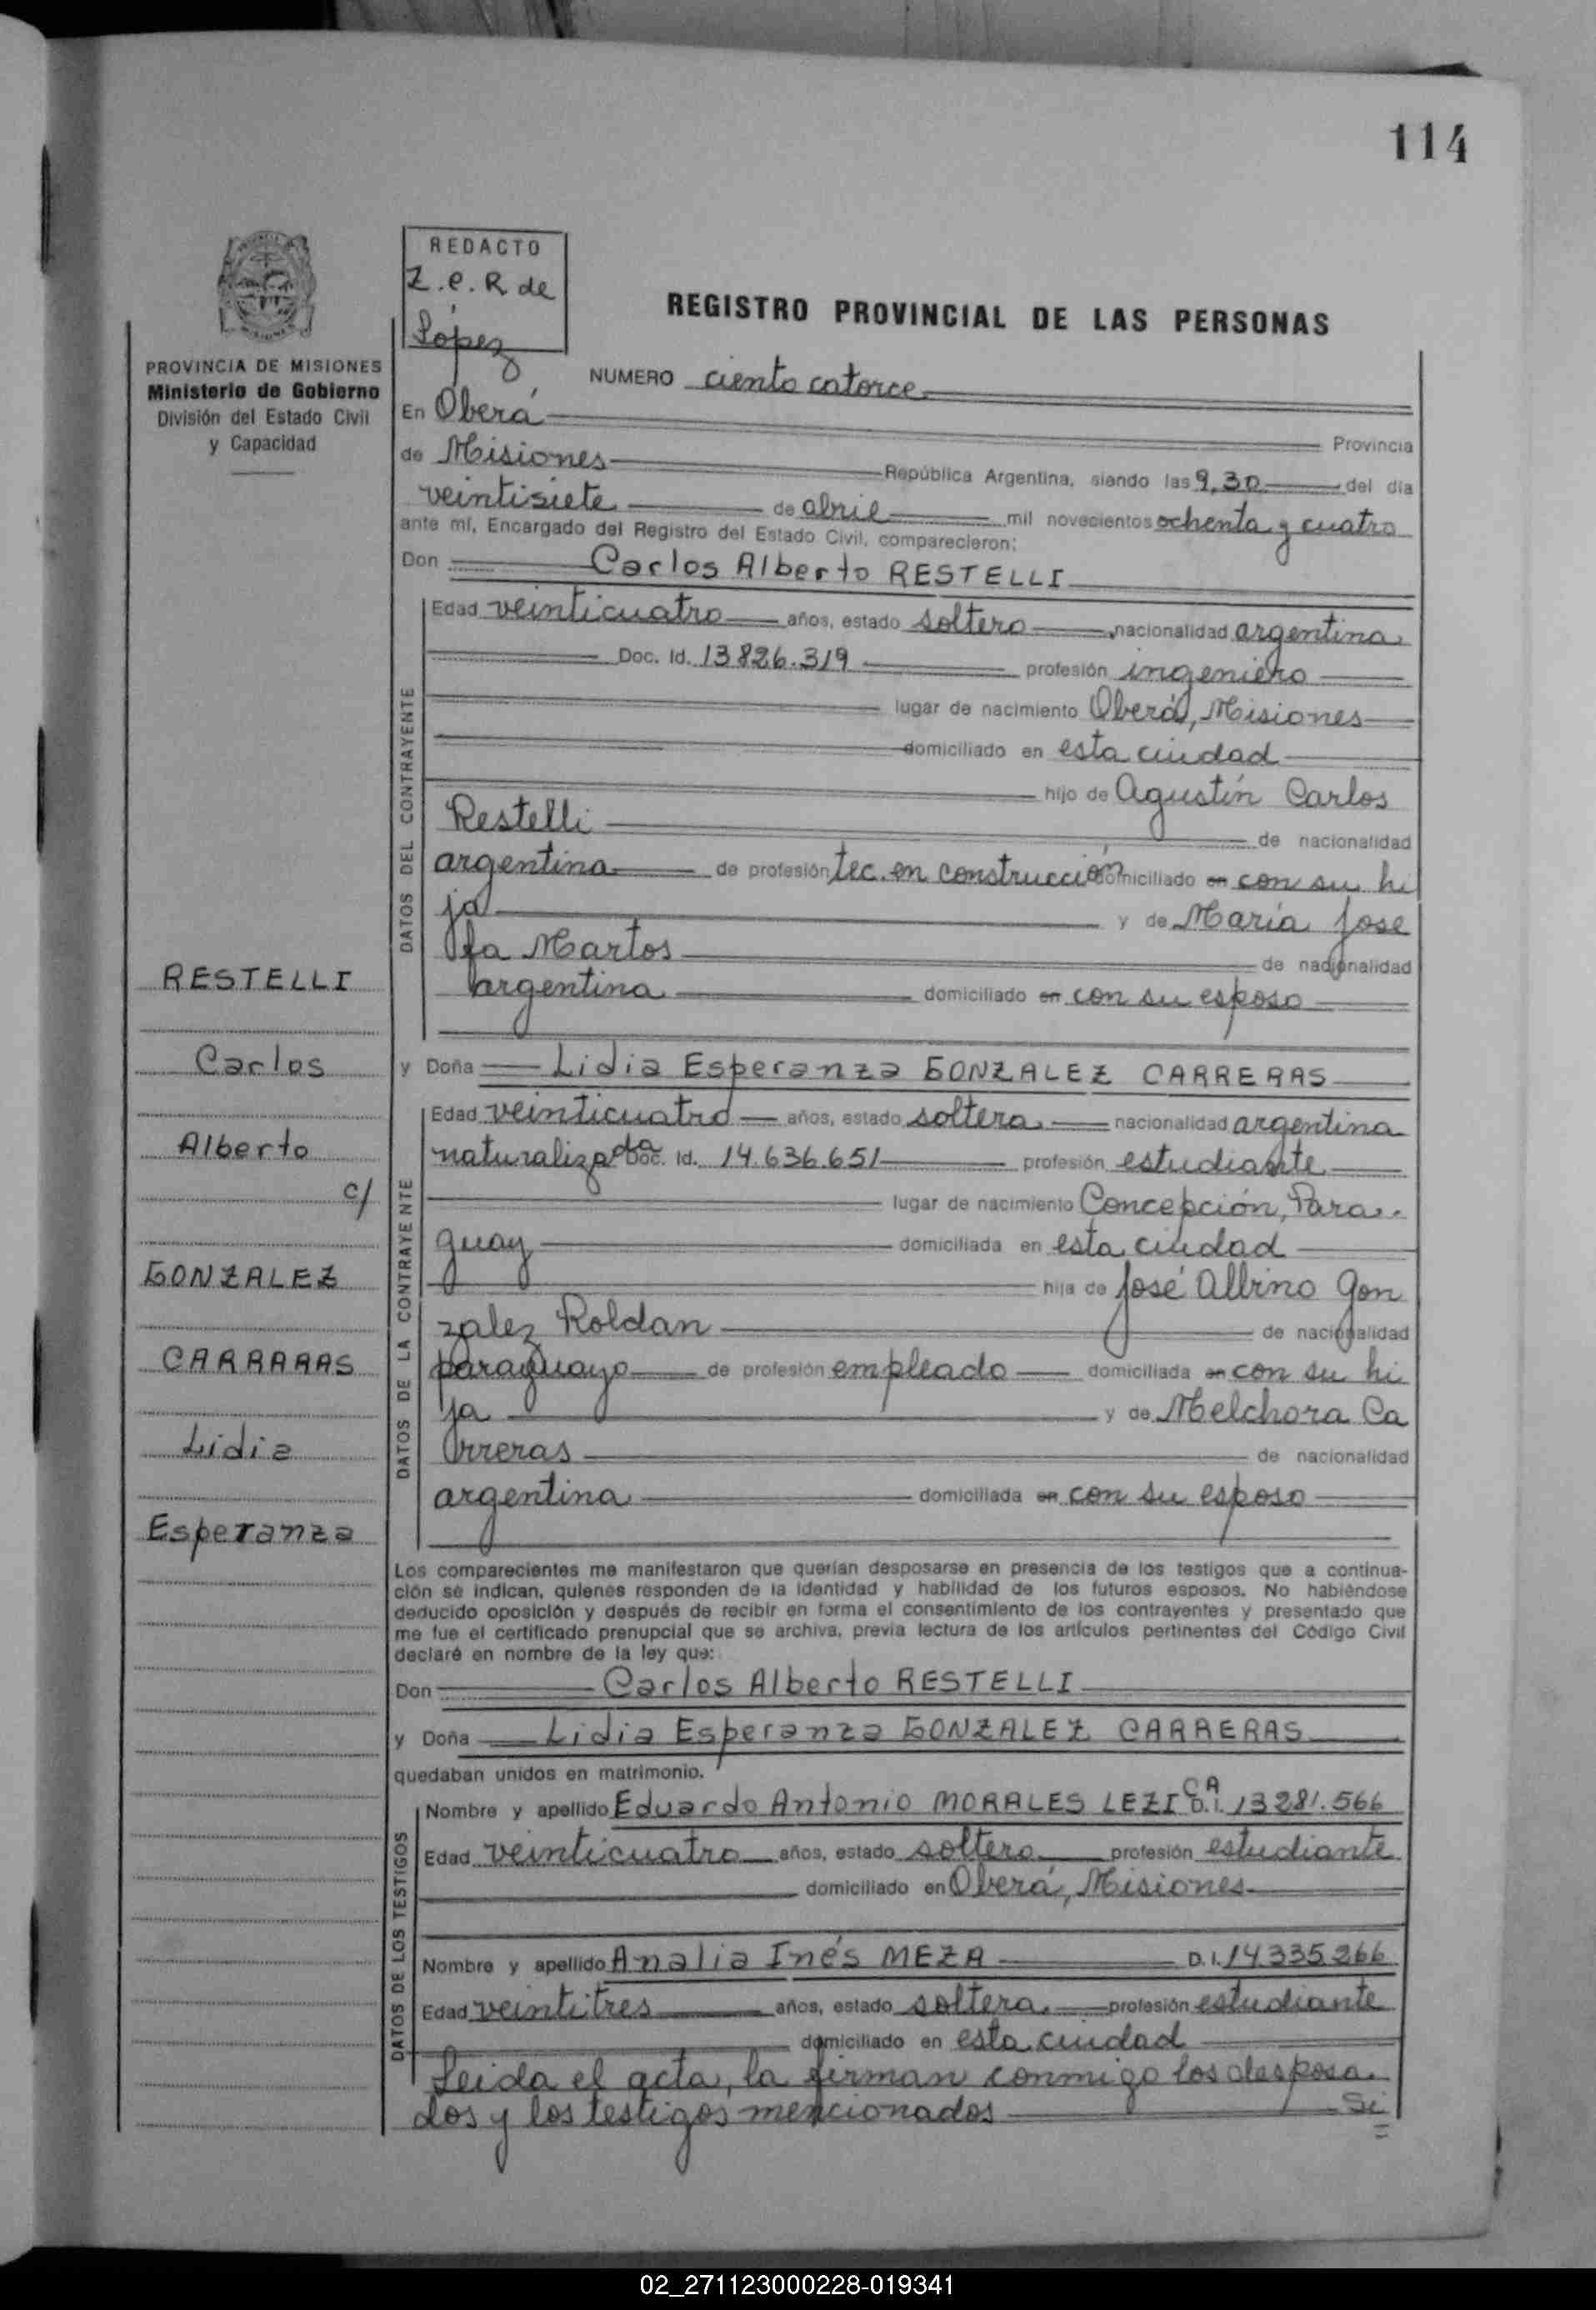 114
REDACTO
Z.e.R de
López
PROVINCIA DE MISIONES
Ministerio de Gobierno
División del Estado Civil
y Capacidad
REGISTRO PROVINCIAL DE LAS PERSONAS
NUMERO ciento catorce
En Oberá Provincia
de Misiones República Argentina, siendo las 9,30 del día
veintisiete de abril mil novecientos ochenta y cuatro
ante mí, Encargado del Registro del Estado Civil, comparecieron:
Don Carlos Alberto RESTELLI
DATOS DEL CONTRAYENTE
Edad veinticuatro años, estado soltero nacionalidad argentina
Doc. Id. 13826.319 profesión ingeniero
lugar de nacimiento Oberá, Misiones
domiciliado en esta ciudad
hijo de Agustín Carlos
Restelli de nacionalidad
argentina de profesión tec. en construcción domiciliado en con su hi
ja y de María Jose
fa Martos de nacionalidad
argentina domiciliado en con su esposo
y Doña Lidia Esperanza GONZALEZ CARRERAS
DATOS DE LA CONTRAYENTE
Edad veinticuatro años, estado soltera nacionalidad argentina
naturalizada Doc. Id. 14.636.651 profesión estudiante
lugar de nacimiento Concepción, Para-
guay domiciliada en esta ciudad
hija de José Albino Gon
zalez Roldan de nacionalidad
paraguayo de profesión empleado domiciliada en con su hi
ja y de Melchora Ca
rreras de nacionalidad
argentina domiciliada en con su esposo
RESTELLI
Carlos
Alberto
c/
GONZALEZ
CARRARAS
Lidia
Esperanza
Los comparecientes me manifestaron que querían desposarse en presencia de los testigos que a continua-
ción se indican, quienes responden de la identidad y habilidad de los futuros esposos. No habiéndose
deducido oposición y después de recibir en forma el consentimiento de los contrayentes y presentado que
me fue el certificado prenupcial que se archiva, previa lectura de los artículos pertinentes del Código Civil
declaré en nombre de la ley que:
Don Carlos Alberto RESTELLI
y Doña Lidia Esperanza GONZALEZ CARRERAS
quedaban unidos en matrimonio.
DATOS DE LOS TESTIGOS
Nombre y apellido Eduardo Antonio MORALES LEZICA D.I. 13281.566
Edad veinticuatro años, estado soltero profesión estudiante
domiciliado en Oberá, Misiones
Nombre y apellido Analia Inés MEZA D.I. 14335.266
Edad veintitres años, estado soltera profesión estudiante
domiciliado en esta ciudad
Leida el acta, la firman conmigo los desposa
dos y los testigos mencionados Si
02_271123000228-019341